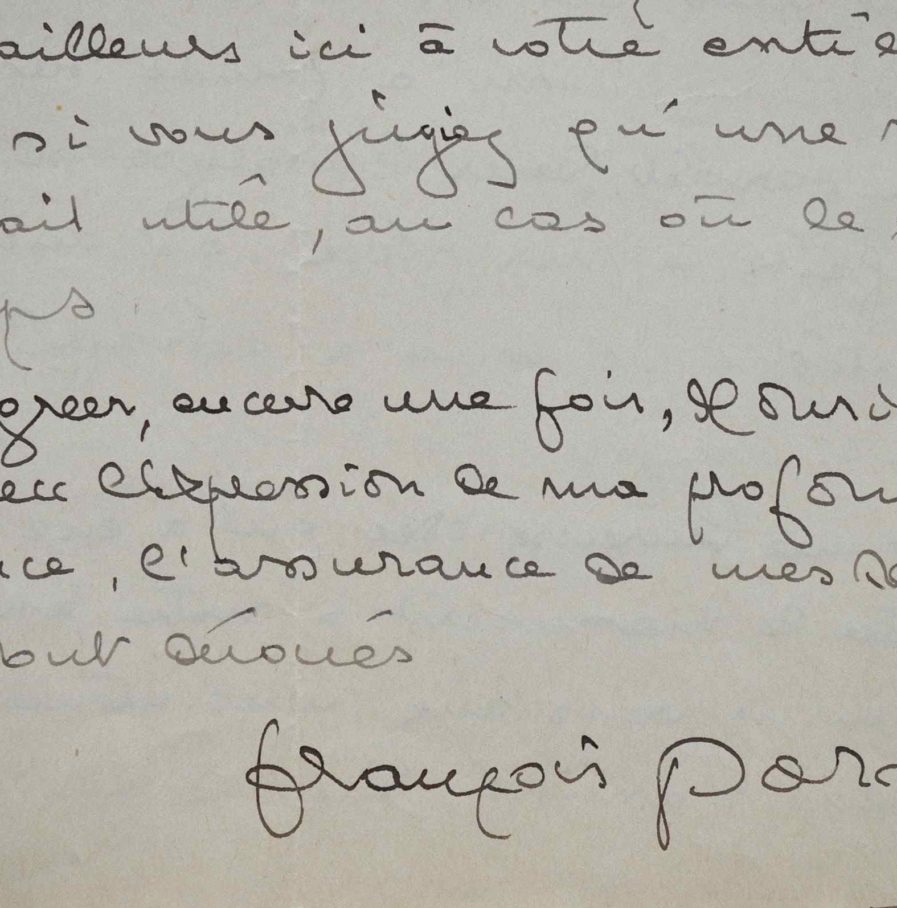 ailleurs ici à votre entiè
si vous jugiez qu'une
ait utile, au cas où le
ps
gréer, encore une fois, Monsi
ec l'expression de ma profon
ce, l'assurance de mes se
out dévoués
françois por